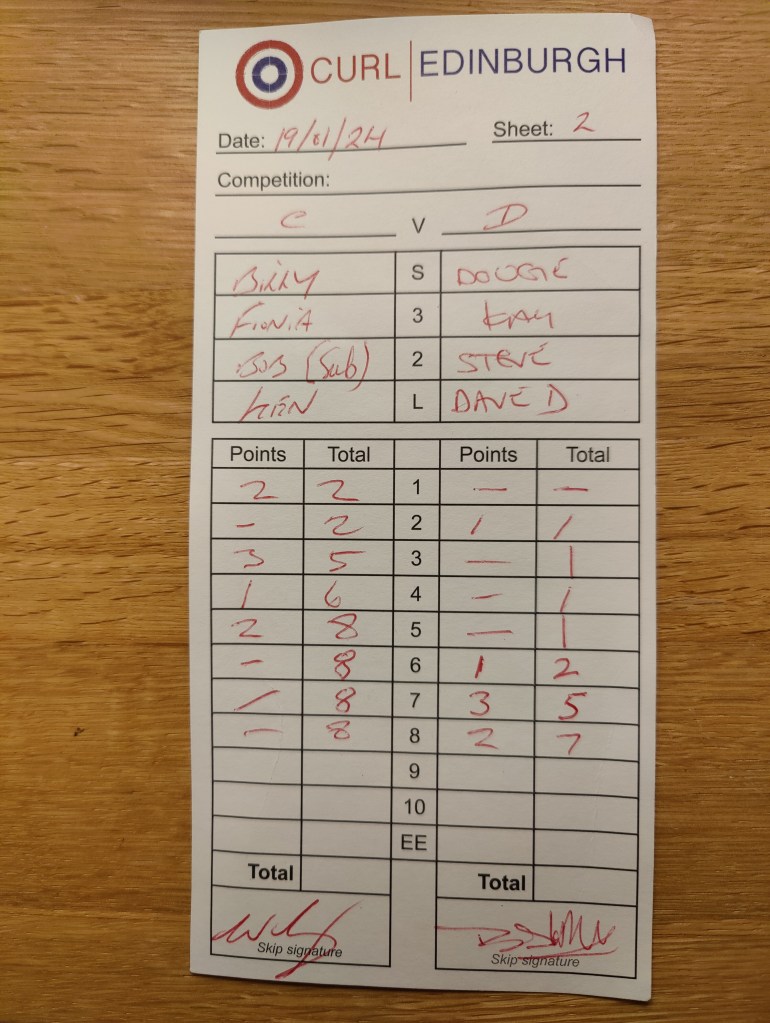 CURL EDINBURGH
Date: 19/01/24 Sheet: 2
Competition:
C V D
BILLY S DOUGIE
FIONIA 3 KAY
BOB (Sub) 2 STEVE
KEN L DAVE D
Points Total Points Total
2 2 1 — —
- 2 2 1 1
3 5 3 — 1
1 6 4 - 1
2 8 5 — 1
- 8 6 1 2
/ 8 7 3 5
— 8 8 2 7
9
10
EE
Total Total
Skip signature Skip signature